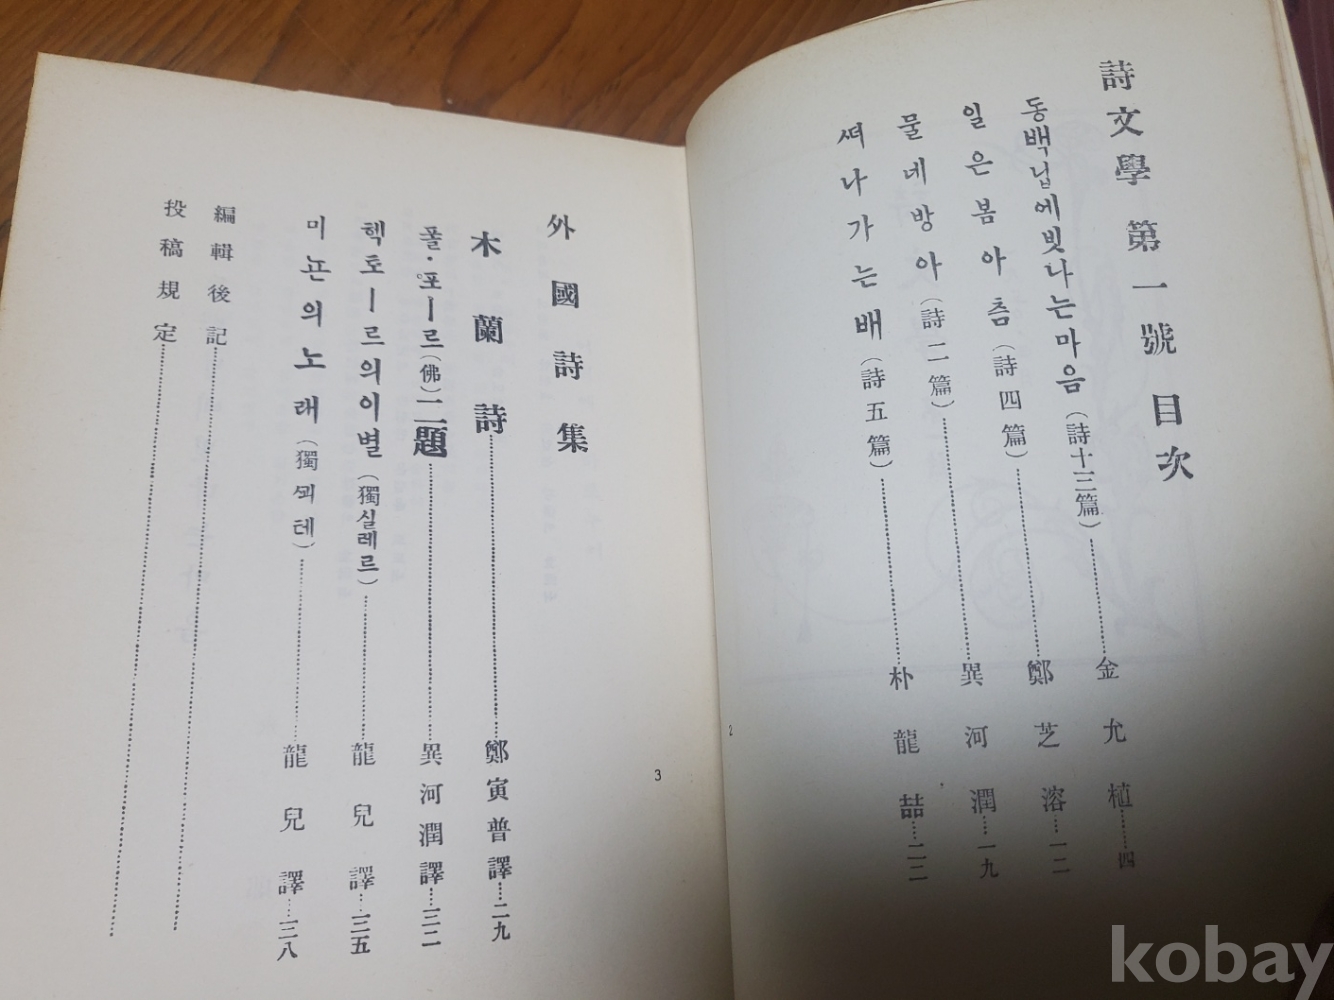 詩文學 第一號 目次
동백닙에빗나는마음(詩十三篇)……金允植……四
일은봄아츰(詩四篇)……鄭芝溶……一二
물네방아(詩二篇)……異河潤……一九
ᄯᅥ나가는배(詩五篇)……朴龍喆……二二
2
外國詩集
木蘭詩……鄭寅普譯……二九
폴·ᅋᅩ—르(佛)二題……異河潤譯……三二
헥토—르의이별(獨실레르)……龍兒譯……三五
미뇬의노래(獨ᄭᅬ테)……龍兒譯……三八
編輯後記……
投稿規定……
3
kobay